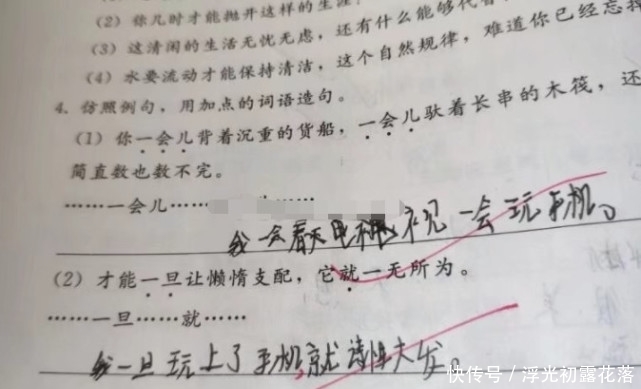 (2) 你几时才能抛开这样的生涯
(3) 这清闲的生活无忧无虑，还有什么能够代替
(4) 水要流动才能保持清洁，这个自然规律，难道你已经忘
4. 仿照例句，用加点的词语造句。
(1) 你一会儿背着沉重的货船，一会儿驮着长串的木筏，还
简直数也数不完。
……一会儿…… ……
我一会看电视 一会玩手机。
(2) 才能一旦让懒惰支配，它就一无所为。
……一旦……就……
我一旦玩上了手机，就诗性大发。
快传号/浮光初露花落